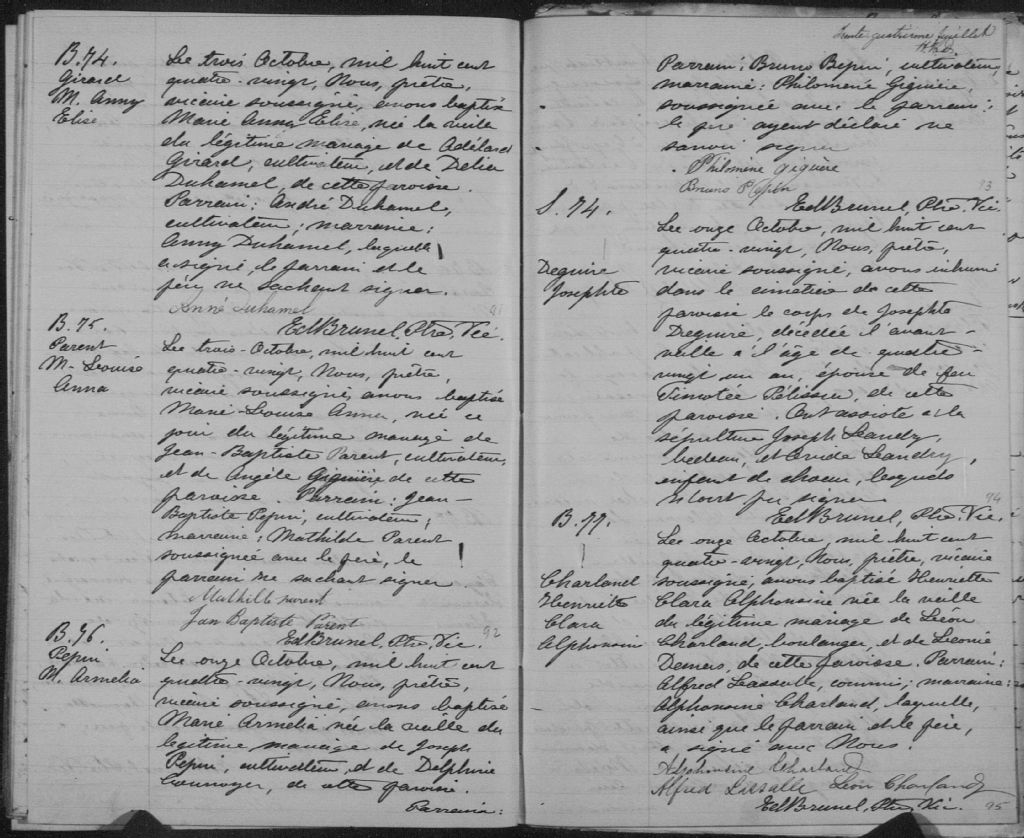 B.74.
Girard
M. Anny
Elise
Le trois Octobre, mil huit cent
quatre-vingt, Nous, prêtre,
vicaire soussigné, avons baptisé
Marie Anna Elise, née la veille
du légitime mariage de Adélard
Girard, cultivateur, et de Delia
Duhamel, de cette paroisse.
Parrain: André Duhamel,
cultivateur; marraine:
Anny Duhamel, laquelle
a signé, le parrain et le
père ne sachant signer.
Anné Duhamel
91
Ed Brunel, Ptre, Vic.
B.75.
Parent
M-Louise
Anna
Le trois-Octobre, mil huit cent
quatre-vingt, Nous, prêtre,
vicaire soussigné, avons baptisé
Marie-Louise Anna, née ce
jour du légitime mariage de
Jean-Baptiste Parent, cultivateur,
et de Angèle Giguère de cette
paroisse. Parrain: Jean-
Baptiste Pepin, cultivateur;
marraine; Mathilde Parent
soussignée avec le père, le
parrain ne sachant signer
Mathilde parent
Jan Baptiste Parent
Ed Brunel, Ptre, Vic.
92
B.76.
Pepin
M. Armelia
Le onze Octobre, mil huit cent
quatre-vingt, Nous, prêtre,
vicaire soussigné, avons baptisé
Marie Armelia née la veille du
légitime mariage de Joseph
Pepin, cultivateur, et de Delphine
Cournoyer, de cette paroisse.
Parrain:
Trente quatrième feuillet
Parrain: Bruno Pepin, cultivateur,
marraine: Philomène Giguère,
soussignée avec le parrain;
le père ayant déclaré ne
savoir signer
Philomène giguère
Bruno Pepin
93
Ed Brunel, Ptre. Vic
S. 74.
Deguire
Josephte
Le onze Octobre, mil huit cent
quatre-vingt, Nous, prêtre,
vicaire soussigné, avons inhumé
dans le cimetière de cette
paroisse le corps de Josephte
Deguire, décédée l'avant-
veille à l'âge de quatre-
vingt un an, épouse de feu
Timotée Pélissier, de cette
paroisse. Ont assisté à la
sépulture Joseph Landry,
bedeau, et Landry,
enfant de choeur, lesquels
n'ont pu signer
94
Ed Brunel, Ptre. Vic.
B. 77.
Charland
Henriette
Clara
Alphonsine
Le onze Octobre, mil huit cent
quatre-vingt, Nous, prêtre, vicaire
soussigné, avons baptisé Henriette
Clara Alphonsine née la veille
du légitime mariage de Léon
Charland, boulanger, et de Leonie
Demers, de cette paroisse. Parrain:
Alfred Lassalle, commis; marraine:
Alphonsine Charland, laquelle,
ainsi que le parrain et le père,
a signé avec Nous.
Alphonsine Charland
Alfred Lassalle Léon Charland
Ed Brunel, Ptre, Vic.
95